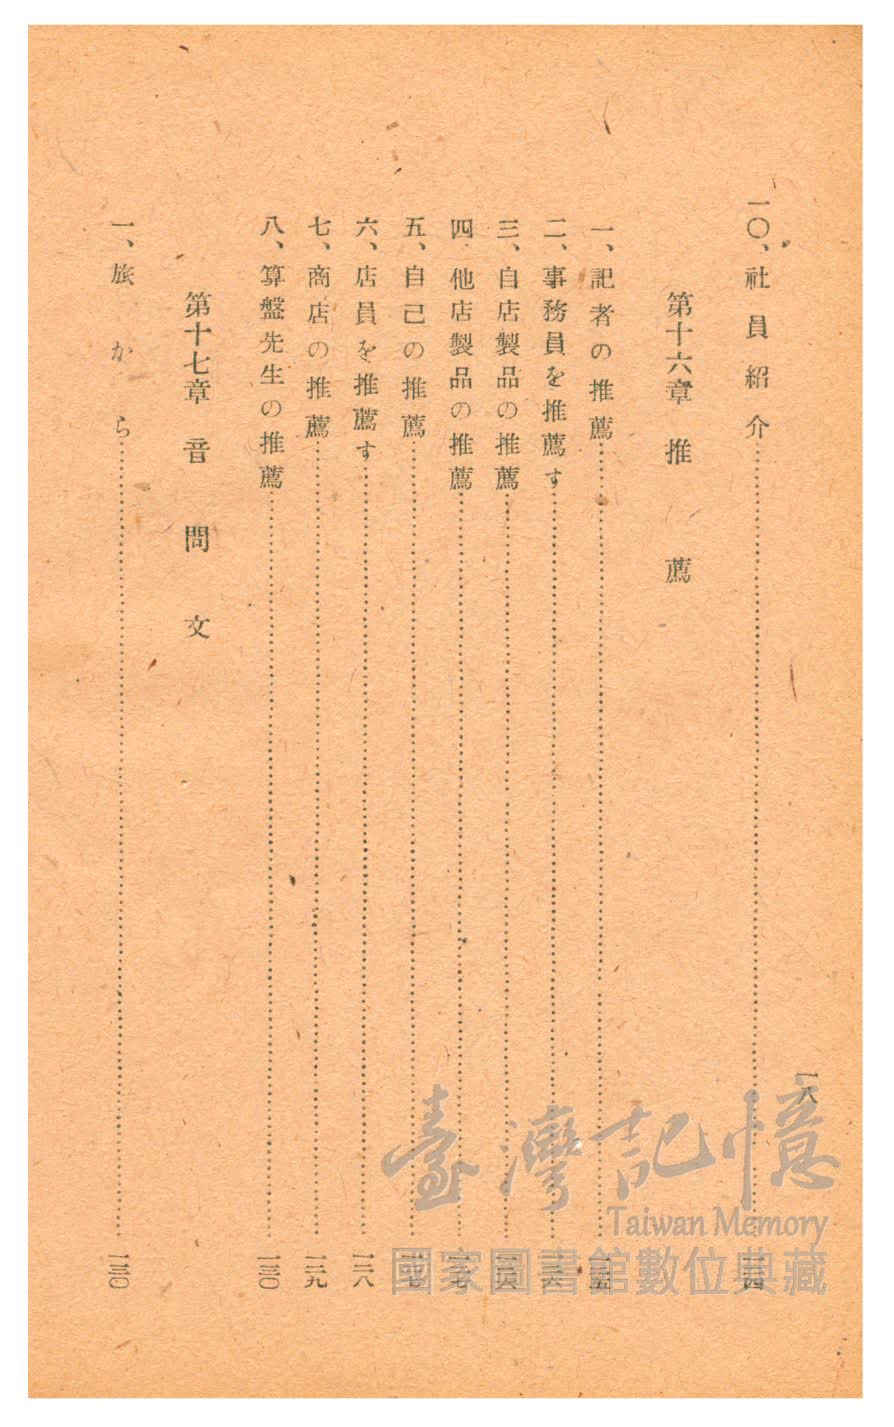 一八
一〇、社員紹介……一二四
第十六章 推薦
一、記者の推薦……一二五
二、事務員を推薦す……一二六
三、自店製品の推薦……一二六
四、他店製品の推薦……一二七
五、自己の推薦……一二七
六、店員を推薦す……一二八
七、商店の推薦……一二九
八、算盤先生の推薦……一三〇
第十七章 音問文
一、旅から……一三〇
臺灣記憶
Taiwan Memory
國家圖書館數位典藏